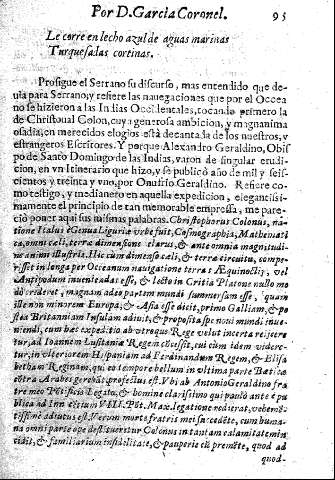 Por D. Garcia Coronel. 95
Le corre en lecho azul de aguas marinas
Turquesadas cortinas.
Prosigue el Serrano su discurso, mas entendido que de-
uia para Serrano, y refiere las nauegaciones que por el Occea
no se hizieron a las Indias Occidentales, tocando primero la
de Christoual Colon, cuya generosa ambicion, y magnanima
osadia, en merecidos elogios està decantada de los nuestros, y
estrangeros Escritores. Y porque Alexandro Geraldino, Obis
po de Santo Domingo de las Indias, varon de singular erudi-
cion, en vn Itinerario que hizo, y se publicò año de mil y seis-
cientos y treinta y vno, por Onufrio Geraldino. Refiere co-
mo testigo, y medianero en aquella expedicion, elegantissi-
mamente el principio de tan memorable empressa, me pare-
ciò poner aqui sus mismas palabras. Christophorus Colonus, na-
tione Italus è Genua Liguriæ vrbe fuit, Cosmographia, Mathemati
ca, omni cæli, terræ dimensione clarus, & ante omnia magnitudi-
ne animi illustris. Hic cum dimenso cæli, & terræ circuitu, compe-
risset in longa per Oceanum nauigatione terras Æquinoctij, vel
Antipodum inueniendas esse, & lecto in Critia Platone nullo mo
do crederet, magnam adeo partem mundi summersam esse, quam
ille non minorem Europa, & Asia esse dicit, primo Galliam, & po
stea Britanniam Insulam adiuit, & proposita spe noui mundi inue-
niendi, cum hæc expeditio ab vtroque Rege velut incerta reijcere
tur, ad Ioannem Lusitaniæ Regem cõcessit, cui cum idem videre-
tur, in vlteriorem Hispaniam ad Ferdinandum Regem, & Elisa
betham Reginam, qui eo tempore bellum in vltima parte Bæticæ
cõtra Arabes gerebãt, profectus est. Vbi ab Antonio Geraldino fra
tre meo Põtificio Legato, & homine clarissimo qui paulò ante è pu
blica ad Innocẽtium VIII. Põt. Max. legatione redierat, vehemẽ-
tissimè adiutus est. Verum morte fratris mei succedẽte, cum huma-
na omni parte ope destitueretur Colonus in tantam calamitatem in
cidit, & familiarium infidelitate, & pauperie eũ premẽte, quod ad
quod-